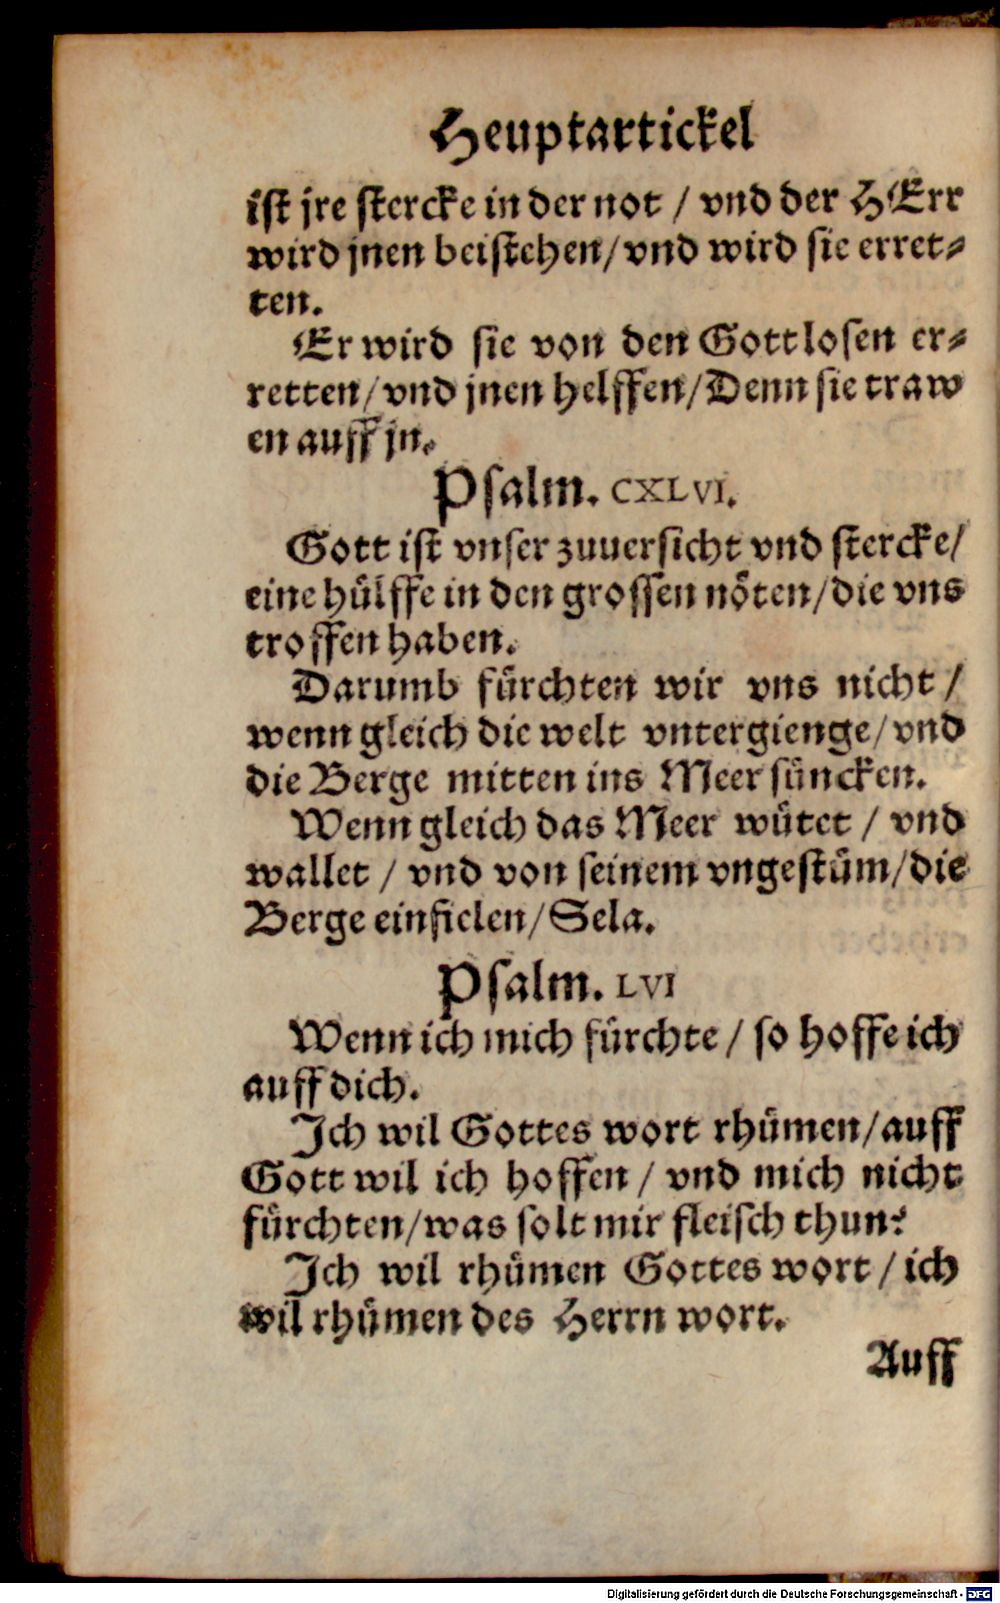 Heuptartickel
ist jre stercke in der not / vnd der HErr
wird jnen beistehen/vnd wird sie erret⸗
ten.
Er wird sie von den Gottlosen er⸗
retten/vnd jnen helffen/Denn sie traw
en auff jn.
Psalm. CXLVI.
Gott ist vnser zuuersicht vnd stercke/
eine hülffe in den grossen nöten/die vns
troffen haben.
Darumb fürchten wir vns nicht /
wenn gleich die welt vntergienge/vnd
die Berge mitten ins Meer süncken.
Wenn gleich das Meer wütet / vnd
wallet / vnd von seinem vngestüm/die
Berge einfielen/Sela.
Psalm. LVI
Wenn ich mich fürchte / so hoffe ich
auff dich.
Ich wil Gottes wort rhümen/auff
Gott wil ich hoffen / vnd mich nicht
fürchten/was solt mir fleisch thun?
Ich wil rhümen Gottes wort / ich
wil rhümen des Herrn wort.
Auff
Digitalisierung gefördert durch die Deutsche Forschungsgemeinschaft - DFG